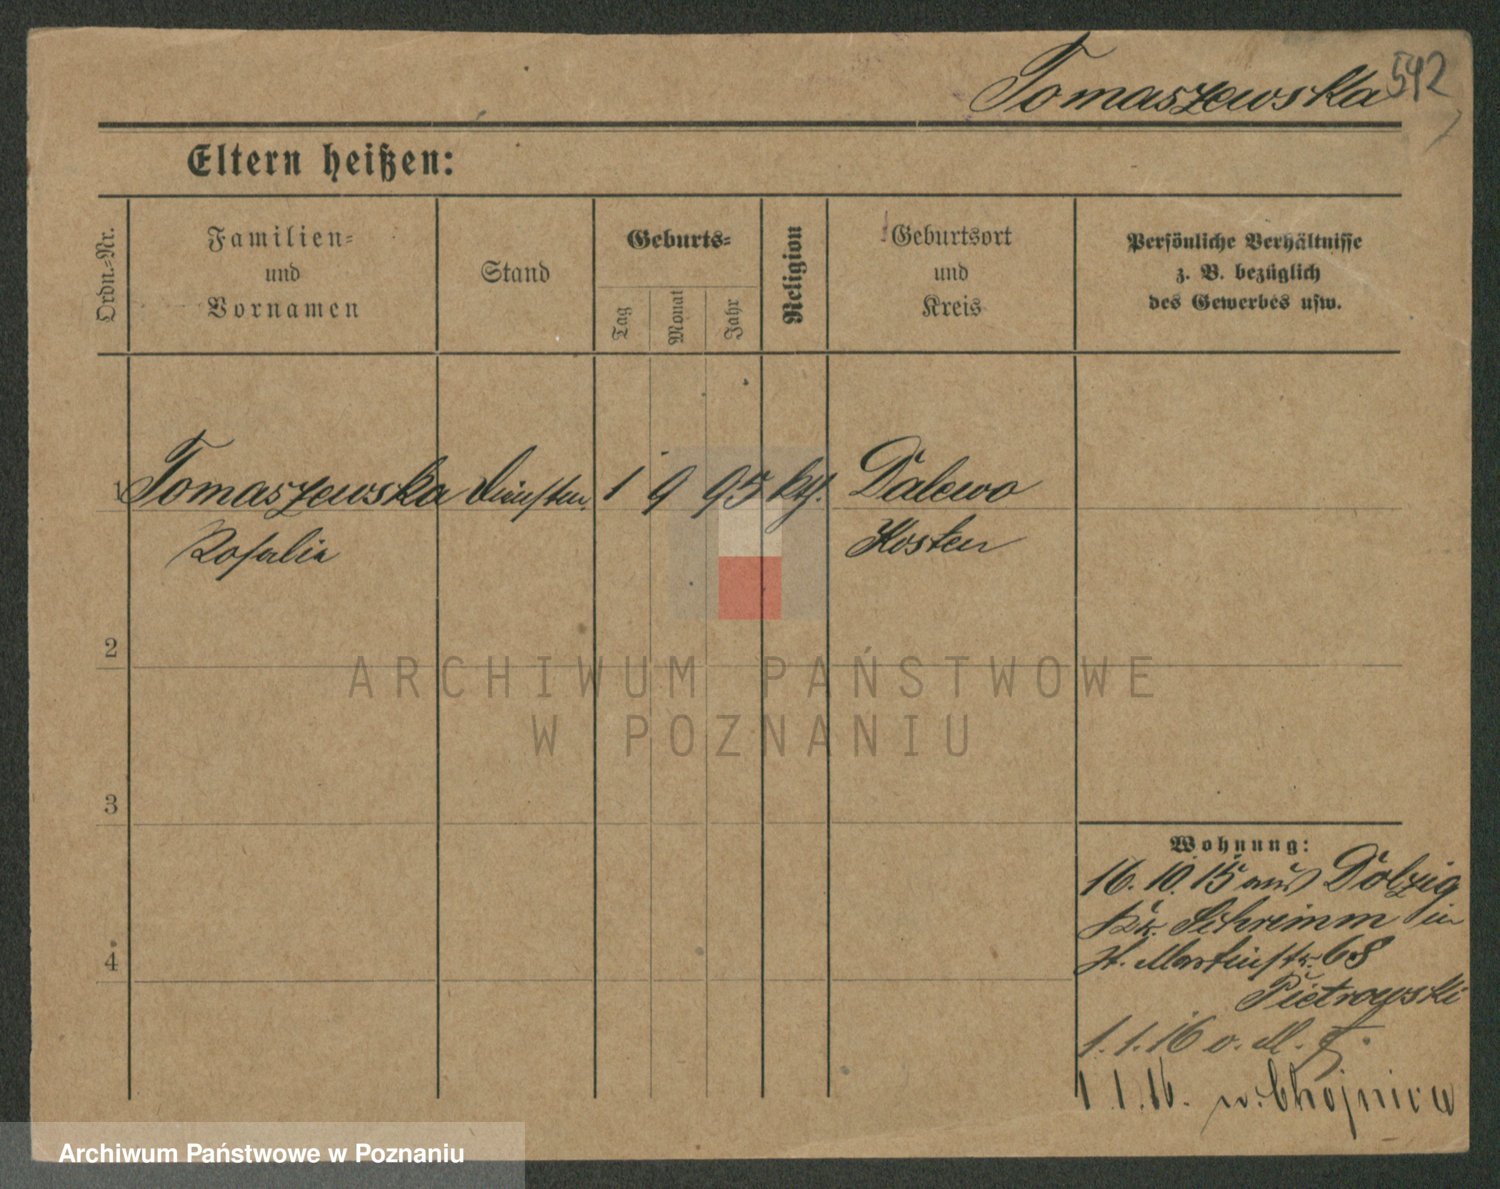 Tomaszewska 542
Eltern heißen:
Ordn.-Nr.
Familien-
und
Vornamen
Stand
Geburts-
Tag
Monat
Jahr
Religion
Geburtsort
und
Kreis
Persönliche Verhältnisse
z. B. bezüglich
des Gewerbes usw.
1 Tomaszewska 1 9 95 Dalewo
Rosalia Kosten
2
3
4
Wohnung:
16.10.15 aus Dolzig
Kr. Schrimm in
St. Martinstr. 68
Pietrowski
1.1.16 o. M.
1.1.16. Chojnica
ARCHIWUM PAŃSTWOWE
W POZNANIU
Archiwum Państwowe w Poznaniu